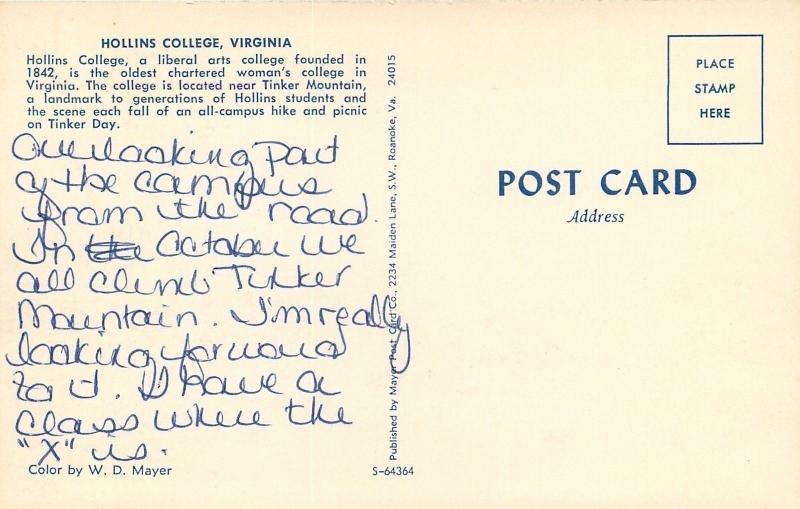 HOLLINS COLLEGE, VIRGINIA
Hollins College, a liberal arts college founded in
1842, is the oldest chartered woman's college in
Virginia. The college is located near Tinker Mountain,
a landmark to generations of Hollins students and
the scene each fall of an all-campus hike and picnic
on Tinker Day.
Overlooking part
of the campus
from the road.
In the October we
all climb Tinker
Mountain. I'm really
looking forward
to it. I have a
class where the
"X" is.
Color by W. D. Mayer
S-64364
Published by Mayer Post Card Co., 2234 Maiden Lane, S.W., Roanoke, Va. 24015
PLACE
STAMP
HERE
POST CARD
Address